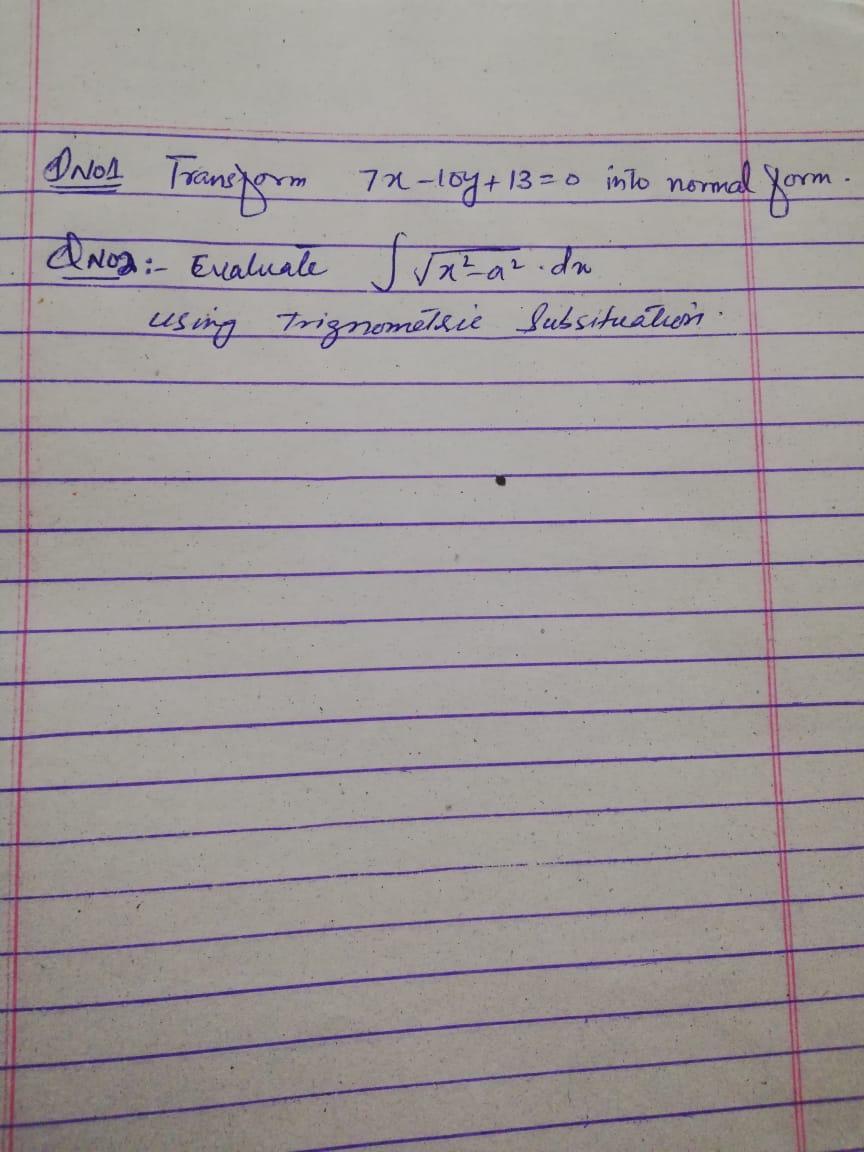 QNo1 Transform 7x-10y+13=0 into normal form.
QNo2:- Evaluate ∫√x²-a² . dx
using Trignometric Subsituation.